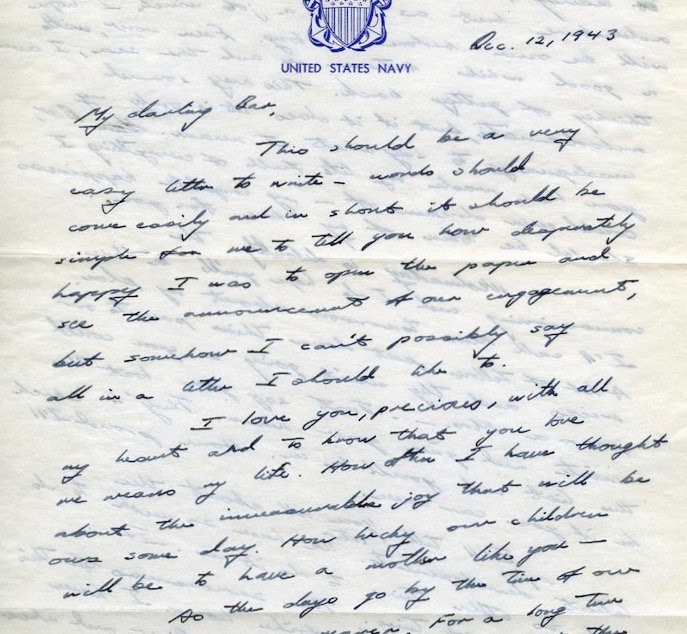 Dec. 12, 1943
UNITED STATES NAVY
My darling Bar,
This should be a very
easy letter to write — words should
come easily and in short it should be
simple for me to tell you how desperately
happy I was to open the paper and
see the announcement of our engagement,
but somehow I can't possibly say
all in a letter I should like to.
I love you, precious, with all
my heart and to know that you love
me means my life. How often I have thought
about the immeasurable joy that will be
ours some day. How lucky our children
will be to have a mother like you —
As the days go by the time of our
nearer. For a long time
the